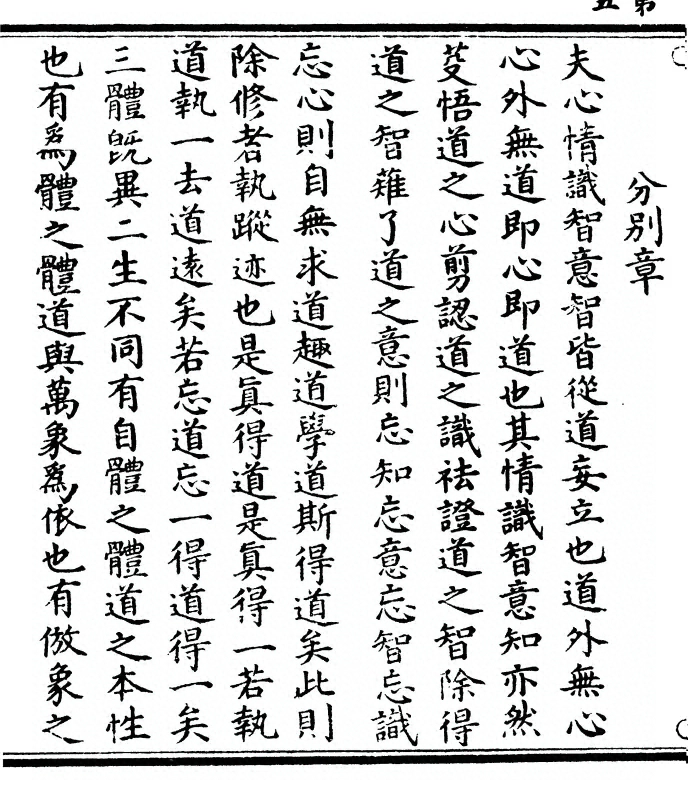 第
五
分别章
夫心情識智意智皆從道妄立也道外無心
心外無道即心即道也其情識智意知亦然
芟悟道之心剪認道之識祛證道之智除得
道之智薙了道之意則忘知忘意忘智忘識
忘心則自無求道趣道學道斯得道矣此則
除修者執蹤迹也是眞得道是眞得一若執
道執一去道逺矣若忘道忘一得道得一矣
三體旣異二生不同有自體之體道之本性
也有爲體之體道與萬象爲依也有倣象之